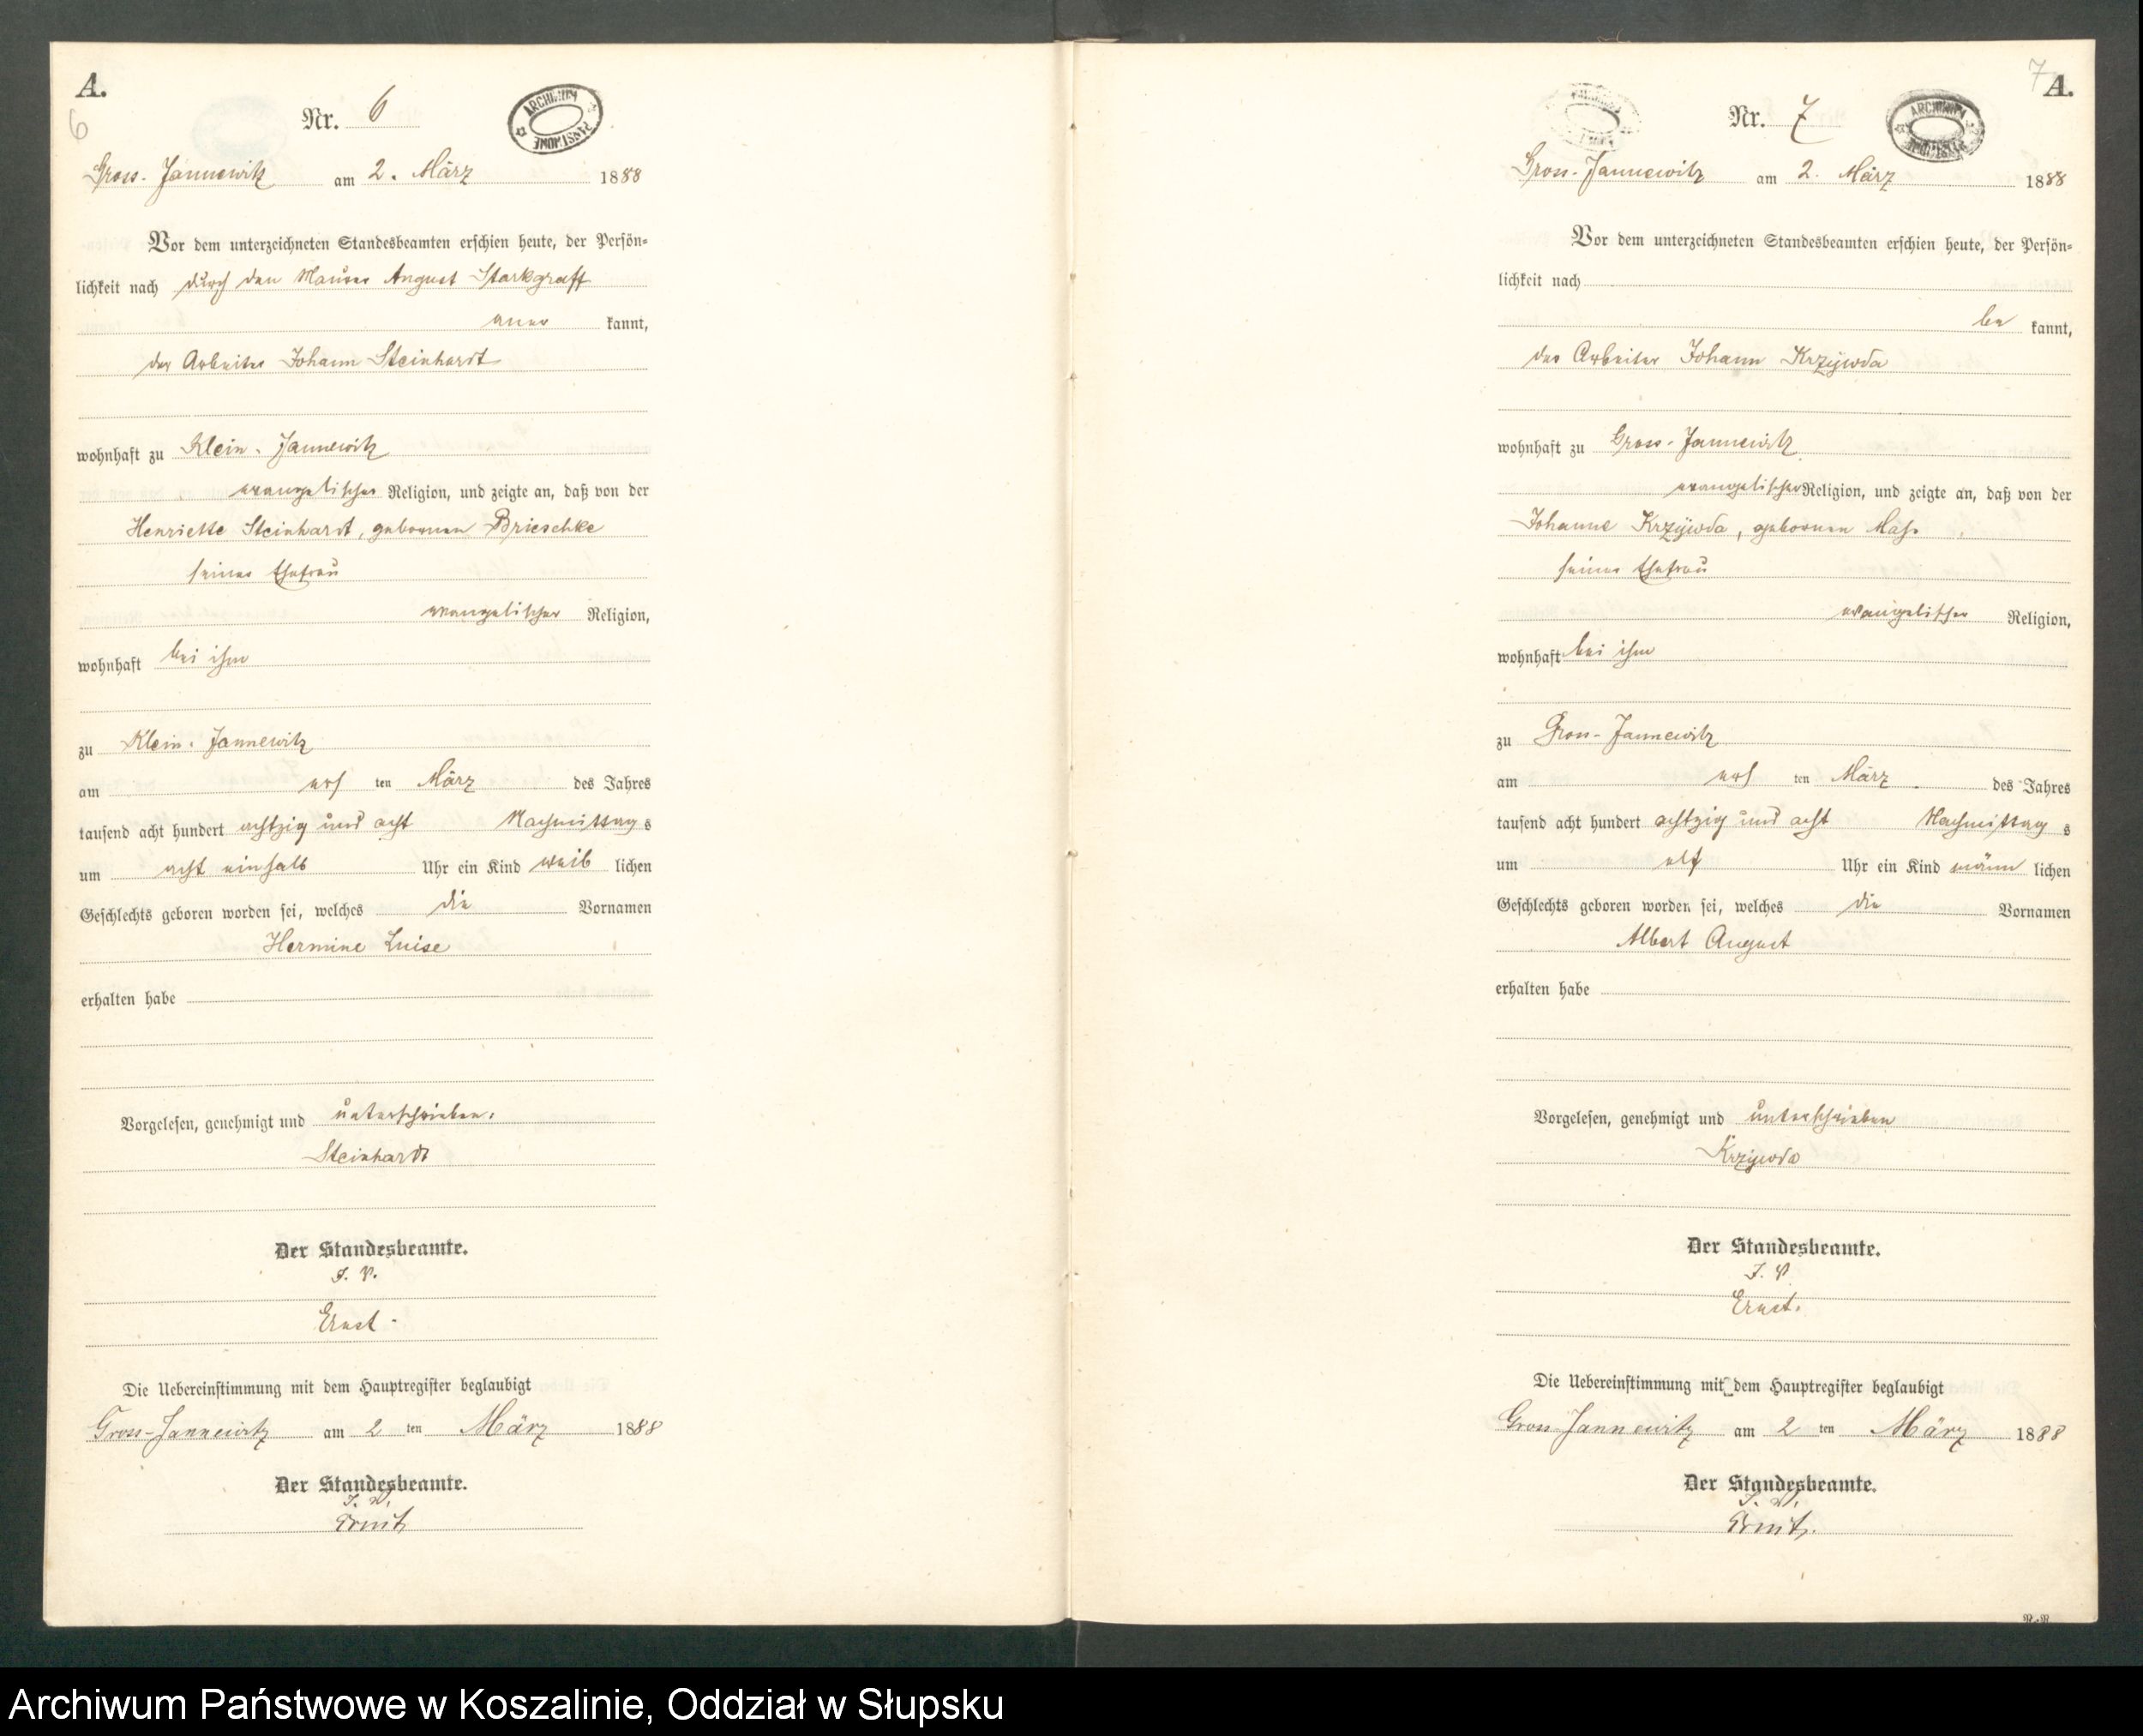 A.
6
Nr. 6
ARCHIWUM PAŃSTWOWE
Gross-Jannewitz am 2. März 1888
Vor dem unterzeichneten Standesbeamten erschien heute, der Persön-
lichkeit nach durch den Maurer August Starkgraff
aner kannt,
der Arbeiter Johann Steinhardt
wohnhaft zu Klein-Jannewitz
evangelischer Religion, und zeigte an, daß von der
Henriette Steinhardt, geborenen Brieschke
seiner Ehefrau
evangelischer Religion,
wohnhaft bei ihm
zu Klein-Jannewitz
am ers ten März des Jahres
tausend acht hundert achtzig und acht Nachmittag s
um acht einhalb Uhr ein Kind weib lichen
Geschlechts geboren worden sei, welches die Vornamen
Hermine Luise
erhalten habe
Vorgelesen, genehmigt und unterschrieben.
Steinhardt
Der Standesbeamte.
J. V.
Ernst.
Die Uebereinstimmung mit dem Hauptregister beglaubigt
Gross-Jannewitz am 2 ten März 1888
Der Standesbeamte.
J. V.
Ernst
7
A.
Nr. 7
ARCHIWUM PAŃSTWOWE
Gross-Jannewitz am 2. März 1888
Vor dem unterzeichneten Standesbeamten erschien heute, der Persön-
lichkeit nach
be kannt,
der Arbeiter Johann Krzÿwda
wohnhaft zu Gross-Jannewitz
evangelischer Religion, und zeigte an, daß von der
Johanne Krzÿwda, geborenen
seiner Ehefrau
evangelischer Religion,
wohnhaft bei ihm
zu Gross-Jannewitz
am ers ten März des Jahres
tausend acht hundert achtzig und acht Nachmittag s
um elf Uhr ein Kind männ lichen
Geschlechts geboren worden sei, welches die Vornamen
Albert August
erhalten habe
Vorgelesen, genehmigt und unterschrieben
Krzÿwda
Der Standesbeamte.
J. V.
Ernst.
Die Uebereinstimmung mit dem Hauptregister beglaubigt
Gross-Jannewitz am 2 ten März 1888
Der Standesbeamte.
J. V.
Ernst.
Archiwum Państwowe w Koszalinie, Oddział w Słupsku